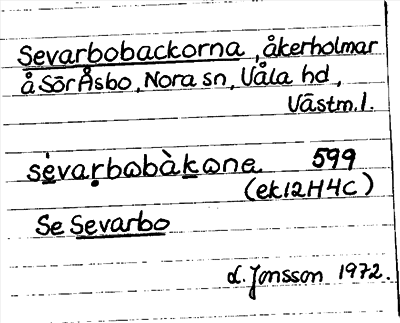 Sevarbobackorna, åkerholmar
å SörÅsbo, Nora sn, Våla hd,
Västm.l.
sèvaṛbobàkone 599
(ek12H4C)
Se Sevarbo
L. Jonsson 1972.